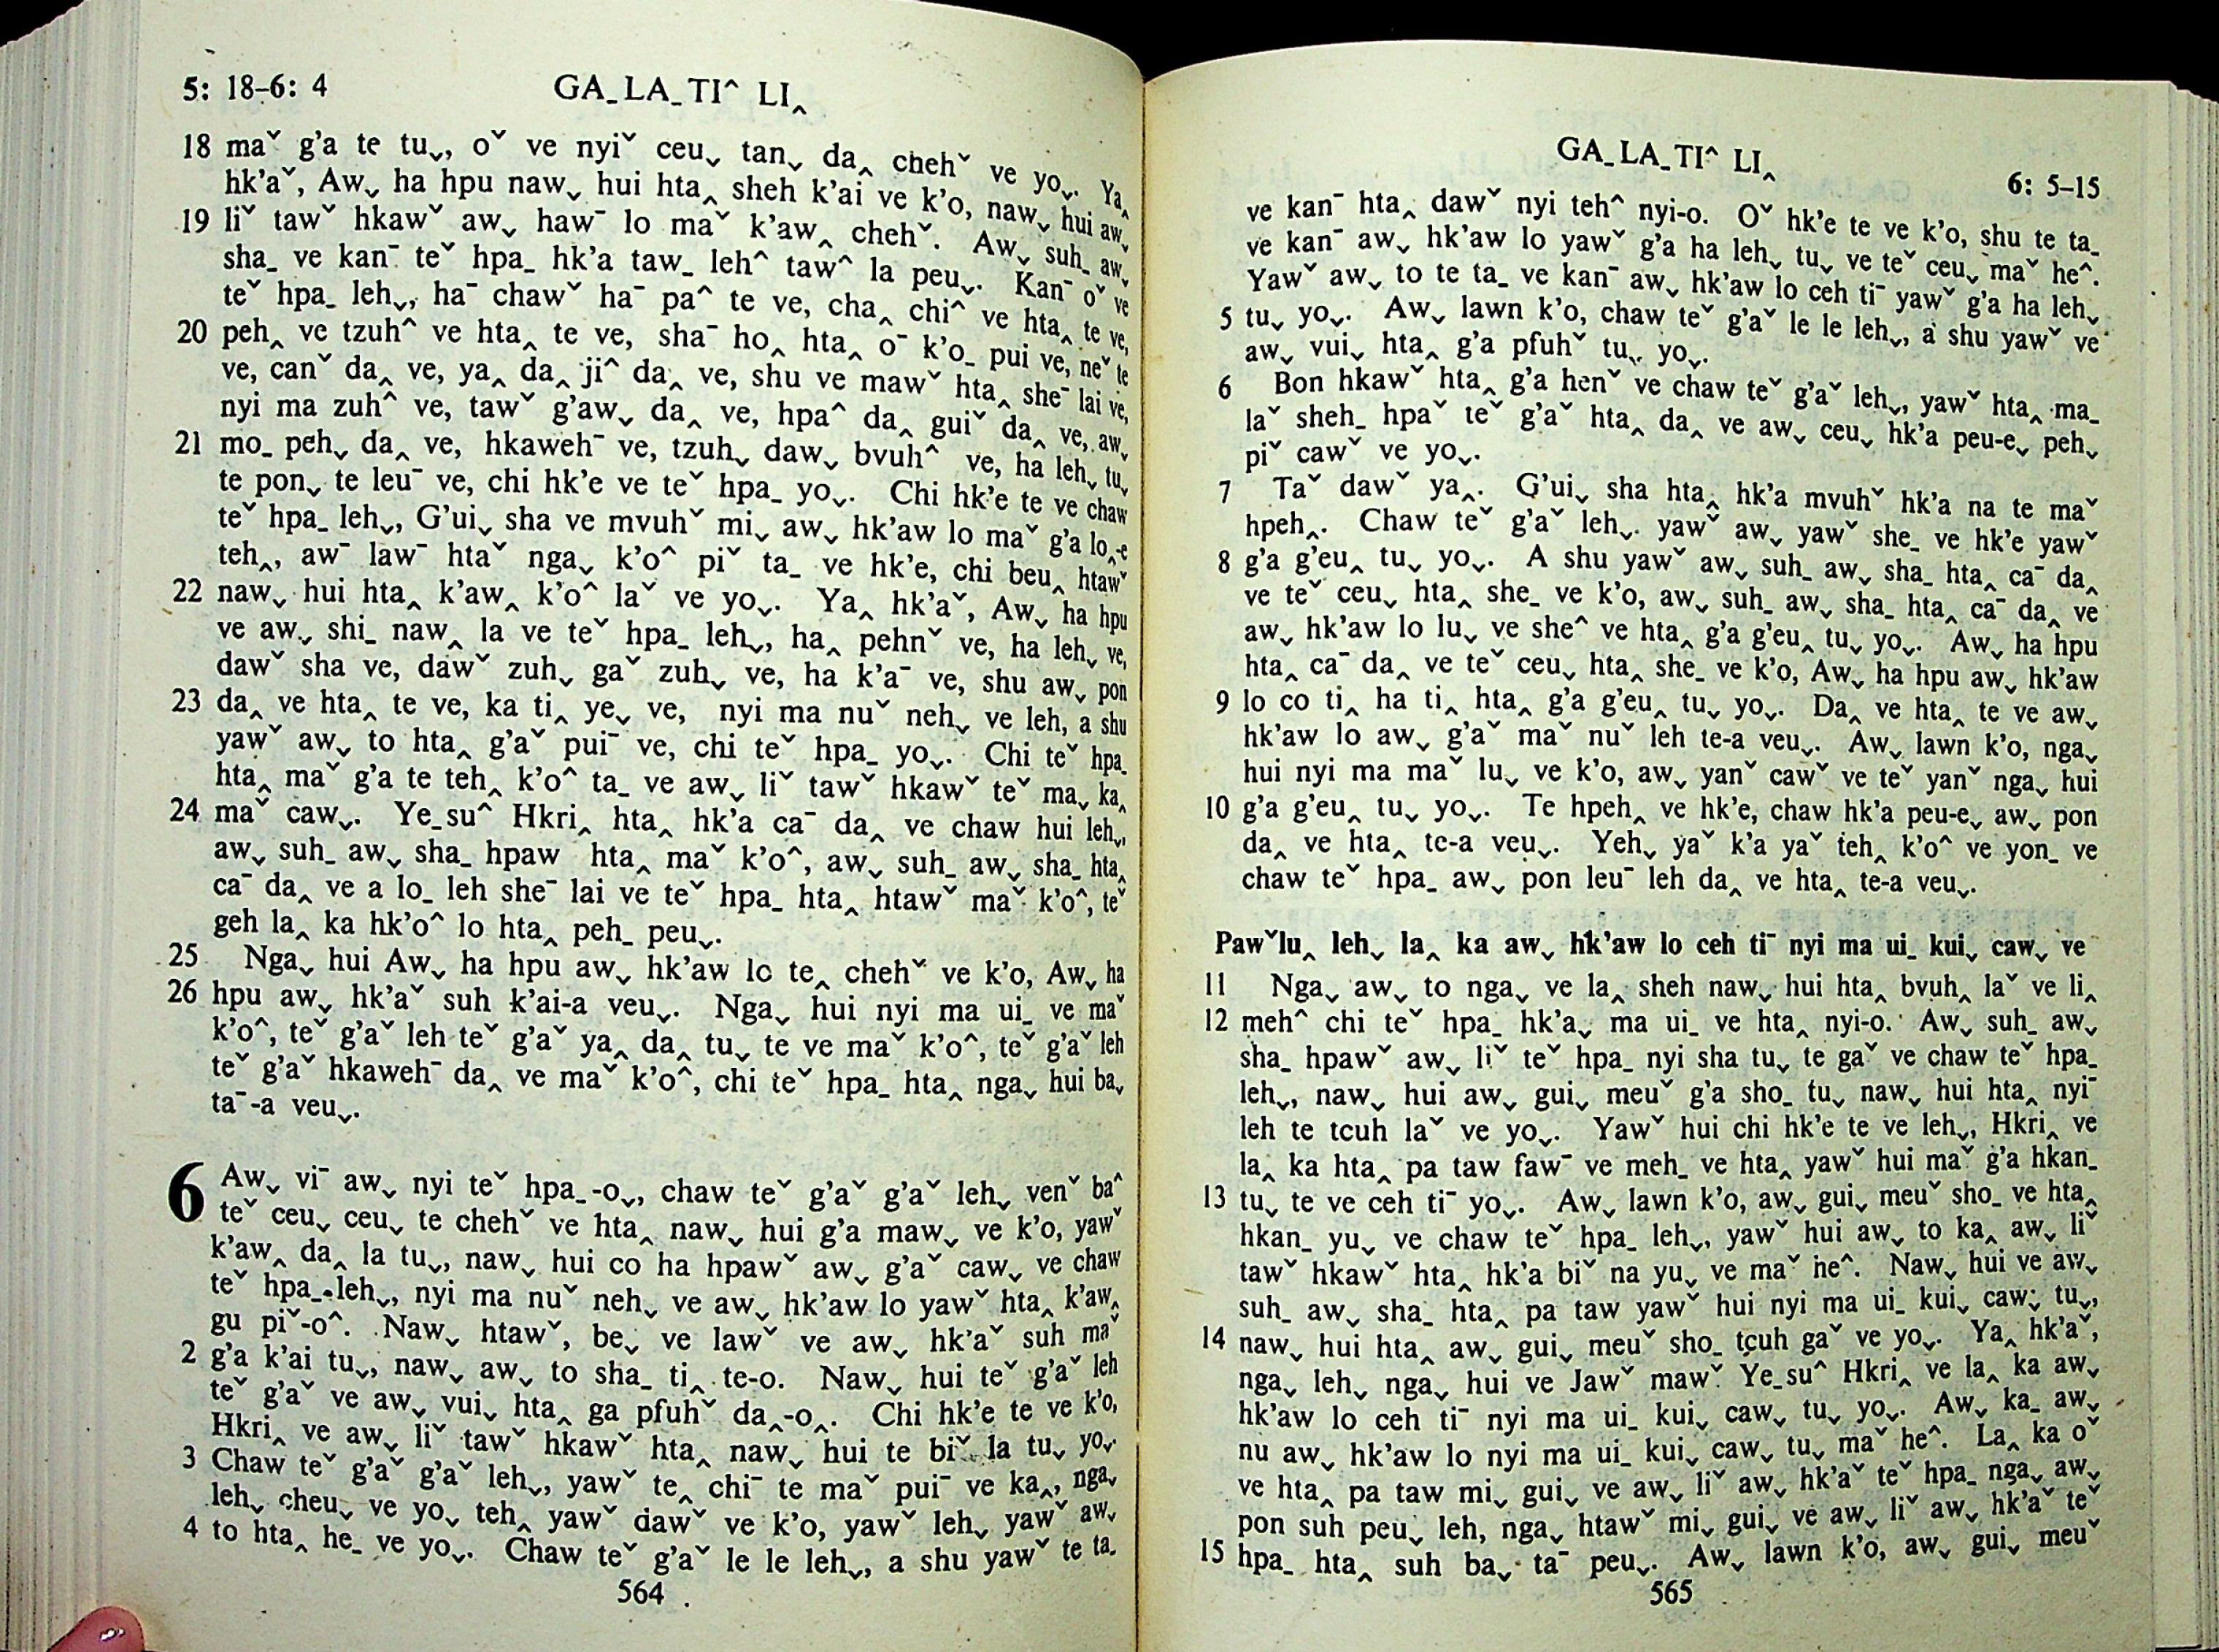 5: 18–6: 4 GA_ LA_ TI^ LI‸
18 maˇ g’a te tu˯, oˇ ve nyiˇ ceu˯ tan˯ da‸ chehˇ ve yo˯. Ya‸
hk’aˇ, Aw˯ ha hpu naw˯ hui hta‸ sheh k’ai ve k’o, naw˯ hui aw˯
19 liˇ tawˇ hkawˇ aw˯ haw¯ lo maˇ k’aw‸ chehˇ. Aw˯ suh_ aw˯
sha_ ve kan¯ teˇ hpa_ hk’a taw_ leh^ taw^ la peu˯. Kan¯ oˇ ve
teˇ hpa_ leh˯, ha¯ chawˇ ha¯ pa^ te ve, cha‸ chi^ ve hta‸ te ve,
20 peh‸ ve tzuh^ ve hta‸ te ve, sha¯ ho‸ hta‸ o¯ k’o_ pui ve, neˇ te
ve, canˇ da‸ ve, ya‸ da‸ ji^ da‸ ve, shu ve mawˇ hta‸ she¯ lai ve,
nyi ma zuh^ ve, tawˇ g’aw˯ da‸ ve, hpa^ da‸ guiˇ da‸ ve, aw˯
21 mo_ peh˯ da‸ ve, hkaweh¯ ve, tzuh˯ daw˯ bvuh^ ve, ha leh˯ tu˯
te pon˯ te leu¯ ve, chi hk’e ve teˇ hpa_ yo˯. Chi hk’e te ve chaw
teˇ hpa_ leh˯, G’ui˯ sha ve mvuhˇ mi˯ aw˯ hk’aw lo maˇ g’a lo‸-e
teh‸, aw¯ law¯ htaˇ nga˯ k’o^ piˇ ta_ ve hk’e, chi beu‸ htawˇ
22 naw˯ hui hta‸ k’aw‸ k’o^ laˇ ve yo˯. Ya‸ hk’aˇ, Aw˯ ha hpu
ve aw˯ shi_ naw‸ la ve teˇ hpa_ leh˯, ha‸ pehnˇ ve, ha leh˯ ve,
dawˇ sha ve, dawˇ zuh˯ gaˇ zuh˯ ve, ha k’a¯ ve, shu aw˯ pon
23 da‸ ve hta‸ te ve, ka ti‸ ye˯ ve, nyi ma nuˇ neh˯ ve leh, a shu
yawˇ aw˯ to hta‸ g’aˇ pui¯ ve, chi teˇ hpa_ yo˯. Chi teˇ hpa_
hta‸ maˇ g’a te teh‸ k’o^ ta_ ve aw˯ liˇ tawˇ hkawˇ teˇ ma˯ ka‸
24 maˇ caw˯. Ye_su^ Hkri‸ hta‸ hk’a ca¯ da‸ ve chaw hui leh˯,
aw˯ suh_ aw˯ sha_ hpaw hta‸ maˇ k’o^, aw˯ suh_ aw˯ sha_ hta‸
ca¯ da‸ ve a lo_ leh she¯ lai ve teˇ hpa_ hta‸ htawˇ maˇ k’o^, teˇ
geh la‸ ka hk’o^ lo hta‸ peh_ peu˯.
25 Nga˯ hui Aw˯ ha hpu aw˯ hk’aw lo te‸ chehˇ ve k’o, Aw˯ ha
26 hpu aw˯ hk’aˇ suh k’ai-a veu˯. Nga˯ hui nyi ma ui_ ve maˇ
k’o^, teˇ g’aˇ leh teˇ g’aˇ ya‸ da‸ tu˯ te ve maˇ k’o^, teˇ g’aˇ leh
teˇ g’aˇ hkaweh¯ da‸ ve maˇ k’o^, chi teˇ hpa_ hta‸ nga˯ hui ba˯
ta¯-a veu˯.
6 Aw˯ vi¯ aw˯ nyi teˇ hpa_-o˯, chaw teˇ g’aˇ g’aˇ leh˯ venˇ ba^
teˇ ceu˯ ceu˯ te chehˇ ve hta‸ naw˯ hui g’a maw˯ ve k’o, yawˇ
k’aw‸ da‸ la tu˯, naw˯ hui co ha hpawˇ aw˯ g’aˇ caw˯ ve chaw
teˇ hpa_ leh˯, nyi ma nuˇ neh˯ ve aw˯ hk’aw lo yawˇ hta‸ k’aw‸
gu piˇ-o^. Naw˯ htawˇ, be˯ ve lawˇ ve aw˯ hk’aˇ suh maˇ
2 g’a k’ai tu˯, naw˯ aw˯ to sha_ ti‸ te-o. Naw˯ hui teˇ g’aˇ leh
teˇ g’aˇ ve aw˯ vui˯ hta‸ ga pfuhˇ da‸-o‸. Chi hk’e te ve k’o,
Hkri‸ ve aw˯ liˇ tawˇ hkawˇ hta‸ naw˯ hui te biˇ la tu˯ yo˯.
3 Chaw teˇ g’aˇ g’aˇ leh˯, yawˇ te‸ chi¯ te maˇ pui¯ ve ka‸, nga˯
leh˯ cheu˯ ve yo˯ teh‸ yawˇ dawˇ ve k’o, yawˇ leh˯ yawˇ aw˯
4 to hta‸ he_ ve yo˯. Chaw teˇ g’aˇ le le leh˯, a shu yawˇ te ta_
564
GA_ LA_ TI^ LI‸
6: 5–15
ve kan¯ hta‸ dawˇ nyi teh^ nyi-o. Oˇ hk’e te ve k’o, shu te ta_
ve kan¯ aw˯ hk’aw lo yawˇ g’a ha leh˯ tu˯ ve teˇ ceu˯ maˇ he^.
Yawˇ aw˯ to te ta_ ve kan¯ aw˯ hk’aw lo ceh ti¯ yawˇ g’a ha leh˯
5 tu˯ yo˯. Aw˯ lawn k’o, chaw teˇ g’aˇ le le leh˯, a shu yawˇ ve
aw˯ vui˯ hta‸ g’a pfuhˇ tu˯ yo˯.
6 Bon hkawˇ hta‸ g’a henˇ ve chaw teˇ g’aˇ leh˯, yawˇ hta‸ ma_
laˇ sheh_ hpaˇ teˇ g’aˇ hta‸ da‸ ve aw˯ ceu˯ hk’a peu-e˯ peh˯
piˇ cawˇ ve yo˯.
7 Taˇ dawˇ ya‸. G’ui˯ sha hta‸ hk’a mvuhˇ hk’a na te maˇ
hpeh‸. Chaw teˇ g’aˇ leh˯. yawˇ aw˯ yawˇ she_ ve hk’e yawˇ
8 g’a g’eu‸ tu˯ yo˯. A shu yawˇ aw˯ suh_ aw˯ sha_ hta‸ ca¯ da‸
ve teˇ ceu˯ hta‸ she_ ve k’o, aw˯ suh_ aw˯ sha_ hta‸ ca¯ da‸ ve
aw˯ hk’aw lo lu˯ ve she^ ve hta‸ g’a g’eu‸ tu˯ yo˯. Aw˯ ha hpu
hta‸ ca¯ da‸ ve teˇ ceu˯ hta‸ she_ ve k’o, Aw˯ ha hpu aw˯ hk’aw
9 lo co ti‸ ha ti‸ hta‸ g’a g’eu‸ tu˯ yo˯. Da‸ ve hta‸ te ve aw˯
hk’aw lo aw˯ g’aˇ maˇ nuˇ leh te-a veu˯. Aw˯ lawn k’o, nga˯
hui nyi ma maˇ lu˯ ve k’o, aw˯ yanˇ cawˇ ve teˇ yanˇ nga˯ hui
10 g’a g’eu‸ tu˯ yo˯. Te hpeh‸ ve hk’e, chaw hk’a peu-e˯ aw˯ pon
da‸ ve hta‸ te-a veu˯. Yeh˯ yaˇ k’a yaˇ teh‸ k’o^ ve yon_ ve
chaw teˇ hpa_ aw˯ pon leu¯ leh da‸ ve hta‸ te-a veu˯.
Pawˇlu‸ leh˯ la‸ ka aw˯ hk’aw lo ceh ti¯ nyi ma ui_ kui˯ caw˯ ve
11 Nga˯ aw˯ to nga˯ ve la‸ sheh naw˯ hui hta‸ bvuh‸ laˇ ve li‸
12 meh^ chi teˇ hpa_ hk’a˯ ma ui_ ve hta‸ nyi-o. Aw˯ suh_ aw˯
sha_ hpawˇ aw˯ liˇ teˇ hpa_ nyi sha tu˯ te gaˇ ve chaw teˇ hpa_
leh˯, naw˯ hui aw˯ gui˯ meuˇ g’a sho_ tu˯ naw˯ hui hta‸ nyi¯
leh te tcuh laˇ ve yo˯. Yawˇ hui chi hk’e te ve leh˯, Hkri‸ ve
la‸ ka hta‸ pa taw faw¯ ve meh_ ve hta‸ yawˇ hui maˇ g’a hkan_
13 tu˯ te ve ceh ti¯ yo˯. Aw˯ lawn k’o, aw˯ gui˯ meuˇ sho_ ve hta‸
hkan_ yu˯ ve chaw teˇ hpa_ leh˯, yawˇ hui aw˯ to ka‸ aw˯ liˇ
tawˇ hkawˇ hta‸ hk’a biˇ na yu˯ ve maˇ he^. Naw˯ hui ve aw˯
suh_ aw˯ sha_ hta‸ pa taw yawˇ hui nyi ma ui_ kui˯ caw˯ tu˯,
14 naw˯ hui hta‸ aw˯ gui˯ meuˇ sho_ tcuh gaˇ ve yo˯. Ya‸ hk’aˇ,
nga˯ leh˯ nga˯ hui ve Jawˇ mawˇ Ye_su^ Hkri‸ ve la‸ ka aw˯
hk’aw lo ceh ti¯ nyi ma ui_ kui˯ caw˯ tu˯ yo˯. Aw˯ ka_ aw˯
nu aw˯ hk’aw lo nyi ma ui_ kui˯ caw˯ tu˯ maˇ he^. La‸ ka oˇ
ve hta‸ pa taw mi˯ gui˯ ve aw˯ liˇ aw˯ hk’aˇ teˇ hpa_ nga˯ aw˯
pon suh peu˯ leh, nga˯ htawˇ mi˯ gui˯ ve aw˯ liˇ aw˯ hk’aˇ teˇ
15 hpa_ hta‸ suh ba˯ ta¯ peu˯. Aw˯ lawn k’o, aw˯ gui˯ meuˇ
565